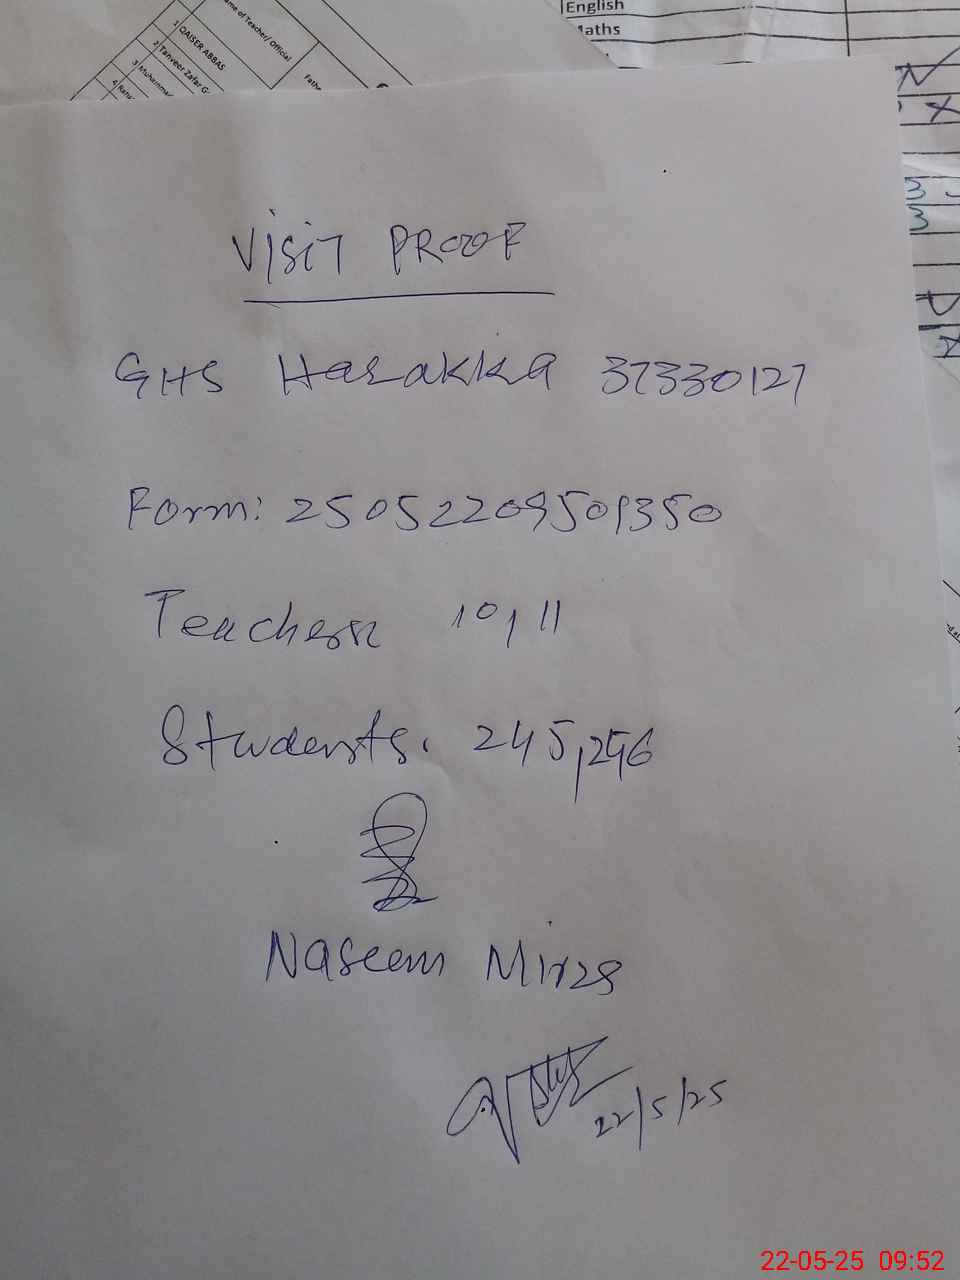 English
aths
me of Teacher/ Official
Fathe
1 QAISER ABBAS
2 Tanveer Zafar G
3 Muhammad
4 Rana
VISIT PROOF
GHS Harakka 37330127
Form: 25052209509350
Teachers 10, 11
Students. 245, 296
Naseem Mirza
22/5/25
22-05-25 09:52